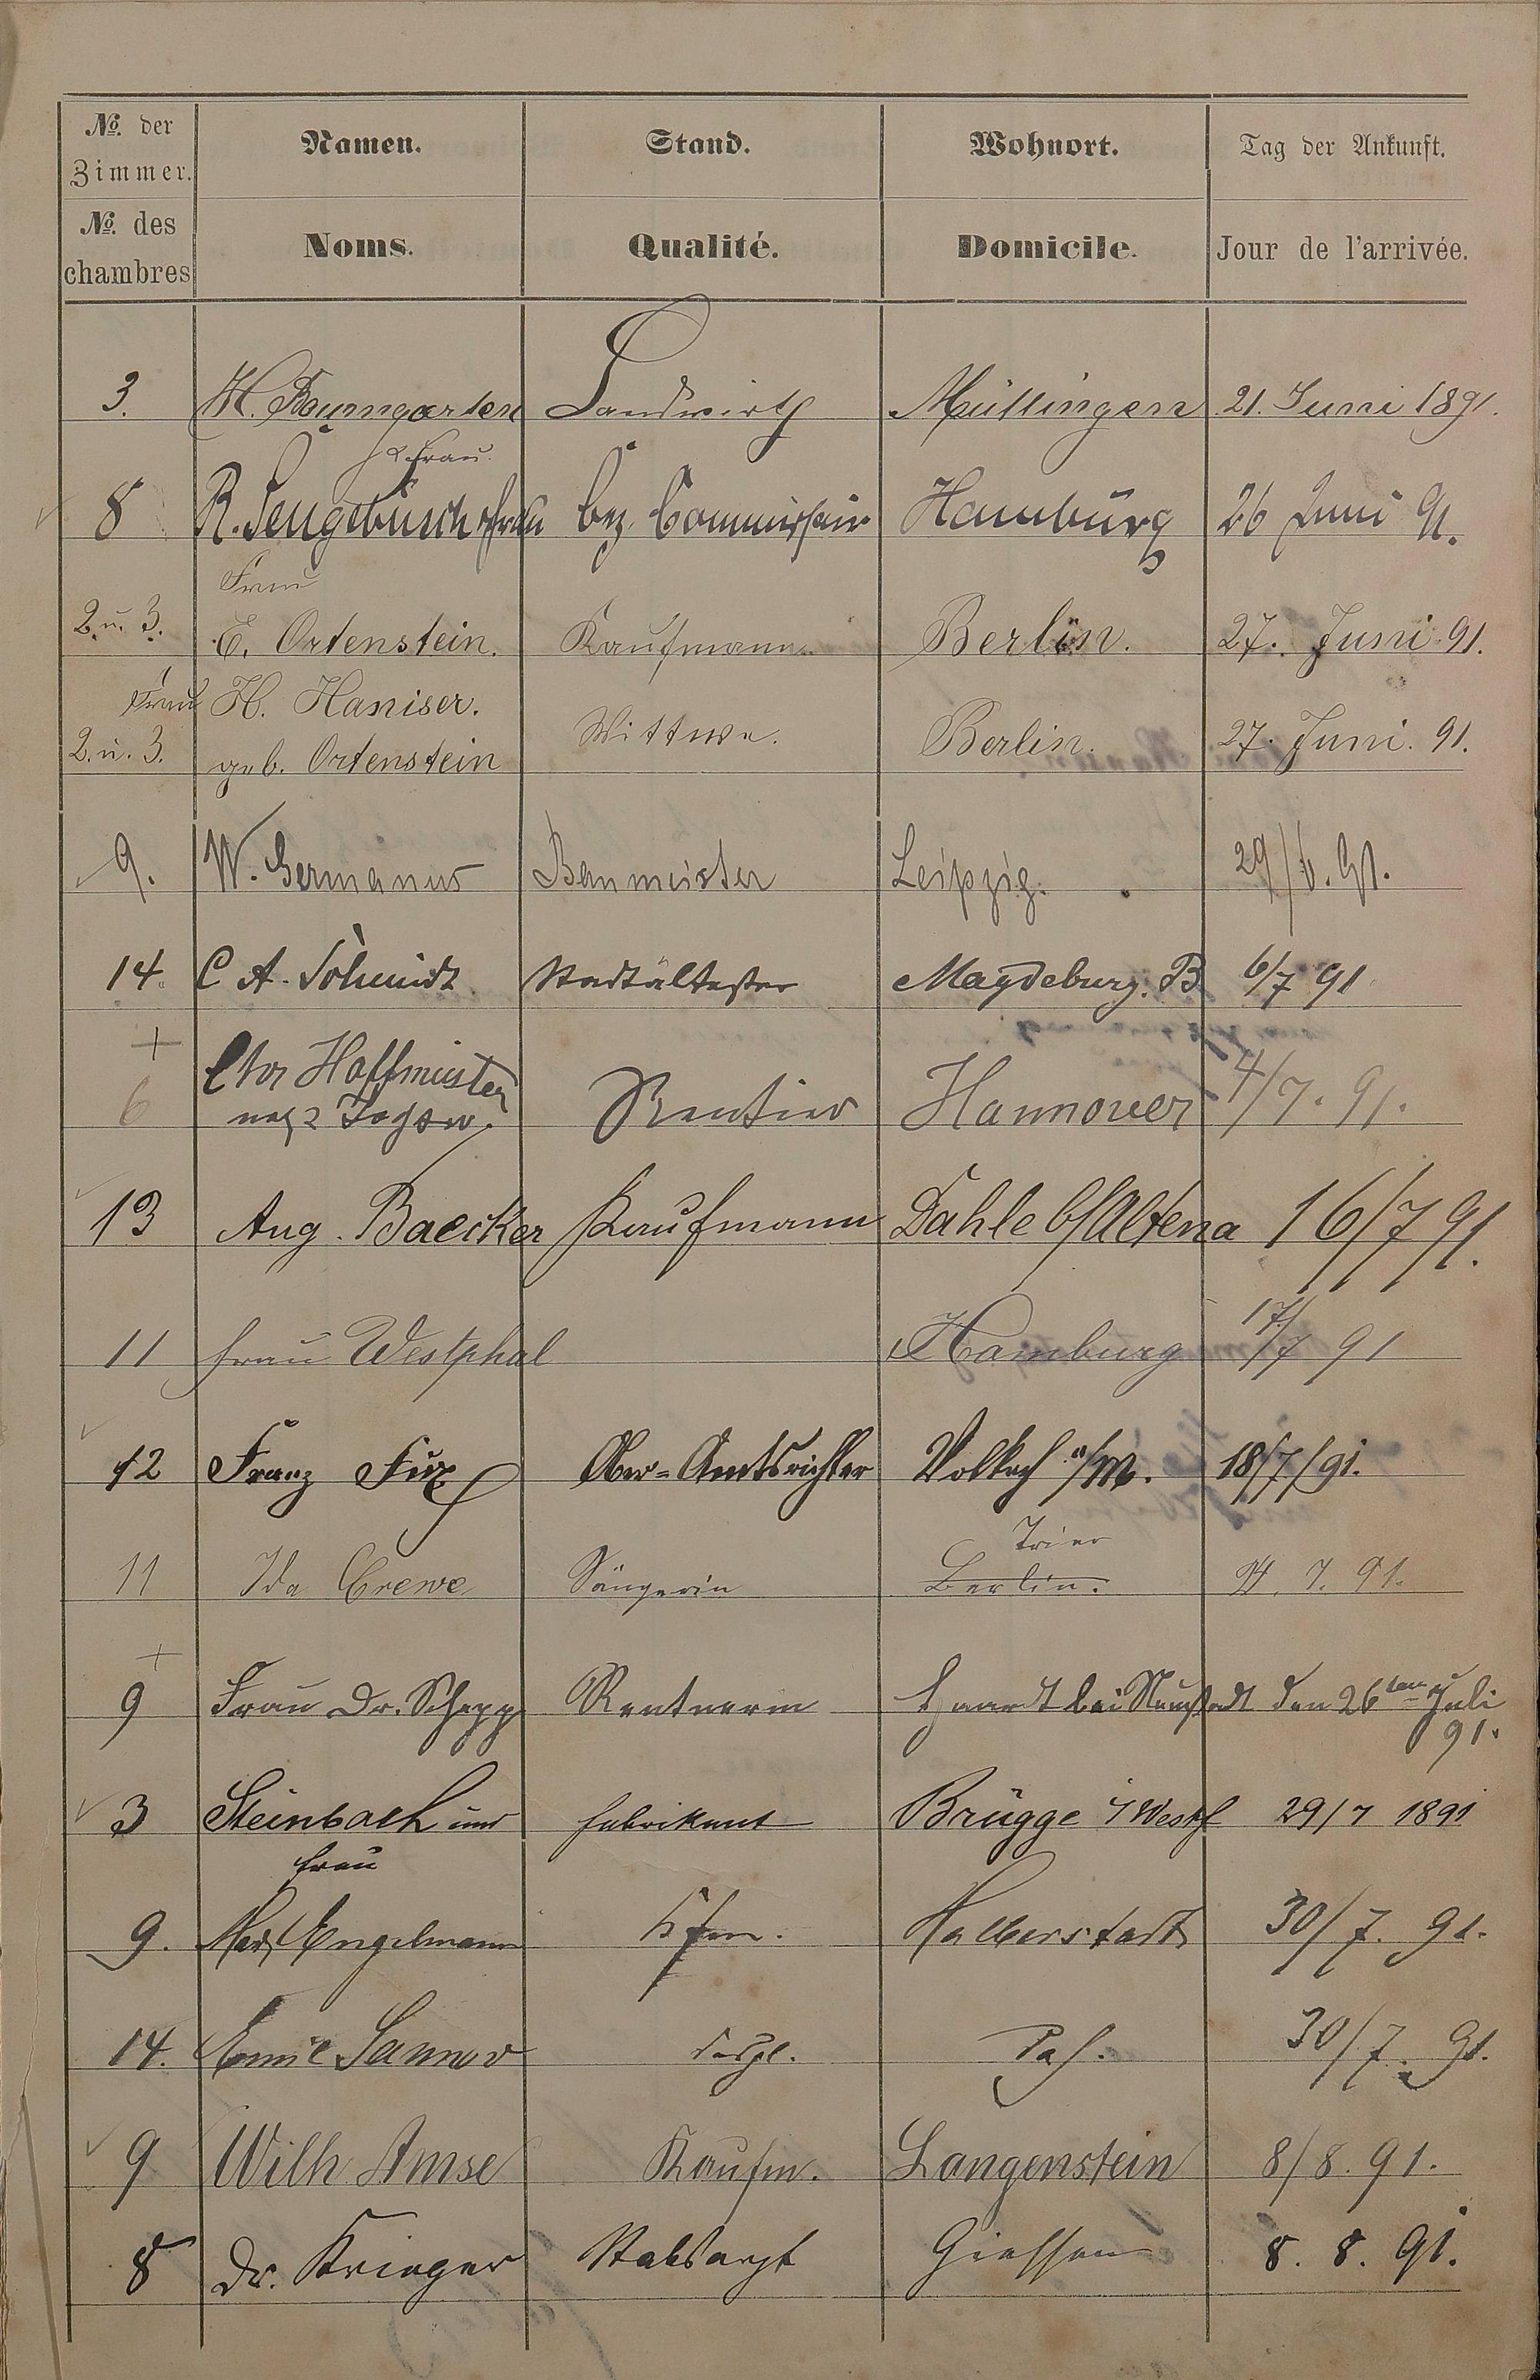 №. der Zimmer. Namen. Stand. Wohnort. Tag der Ankunft.
№. des chambres Noms. Qualité. Domicile. Jour de l'arrivée.
3. H. Baumgarten Landwirth Müllingen 21. Juni 1891.
& Frau.
8 R. Sengebusch & Frau bez. Commissair Hamburg 26 Juni 91.
Frau
2 u. 3. E. Ortenstein. Kaufmann. Berlin. 27. Juni. 91.
Frau H. Haniser.
2. u. 3. geb. Ortenstein Wittwe. Berlin. 27. Juni. 91.
9. W. Germanus Baumeister Leipzig. 29/6. 91.
14. C A. Schmidt Stadtältester Magdeburg. B 6/7 91
+
6 Hoffmeister Rentier Hannover 4/7. 91.
13 Aug. Baecker Kaufmann Dahle b/Altena 16/7 91.
11 Frau Westphal Hamburg 17/7 91
12 Franz Fux Ober-Amtsrichter Volkach a/M. 18/7/91.
Trier
11 Ida Crewe Sängerin Berlin. 7. 91.
+
9 Frau Dr. Schepp Rentnerin Haardt bei Neustadt den 26ten Juli
91.
3 Steinbach und Fabrikant Brügge i/Westf 29/7 1891
Frau
9. Max Engelmann Kfm. Halberstadt 30/7. 91.
14. Emil Sannov desgl. 30/7. 91.
9 Wilh Amse Kaufm. Langenstein 8/8. 91.
8 Dr. Krieger Stabsarzt Giessen 8. 8. 91.